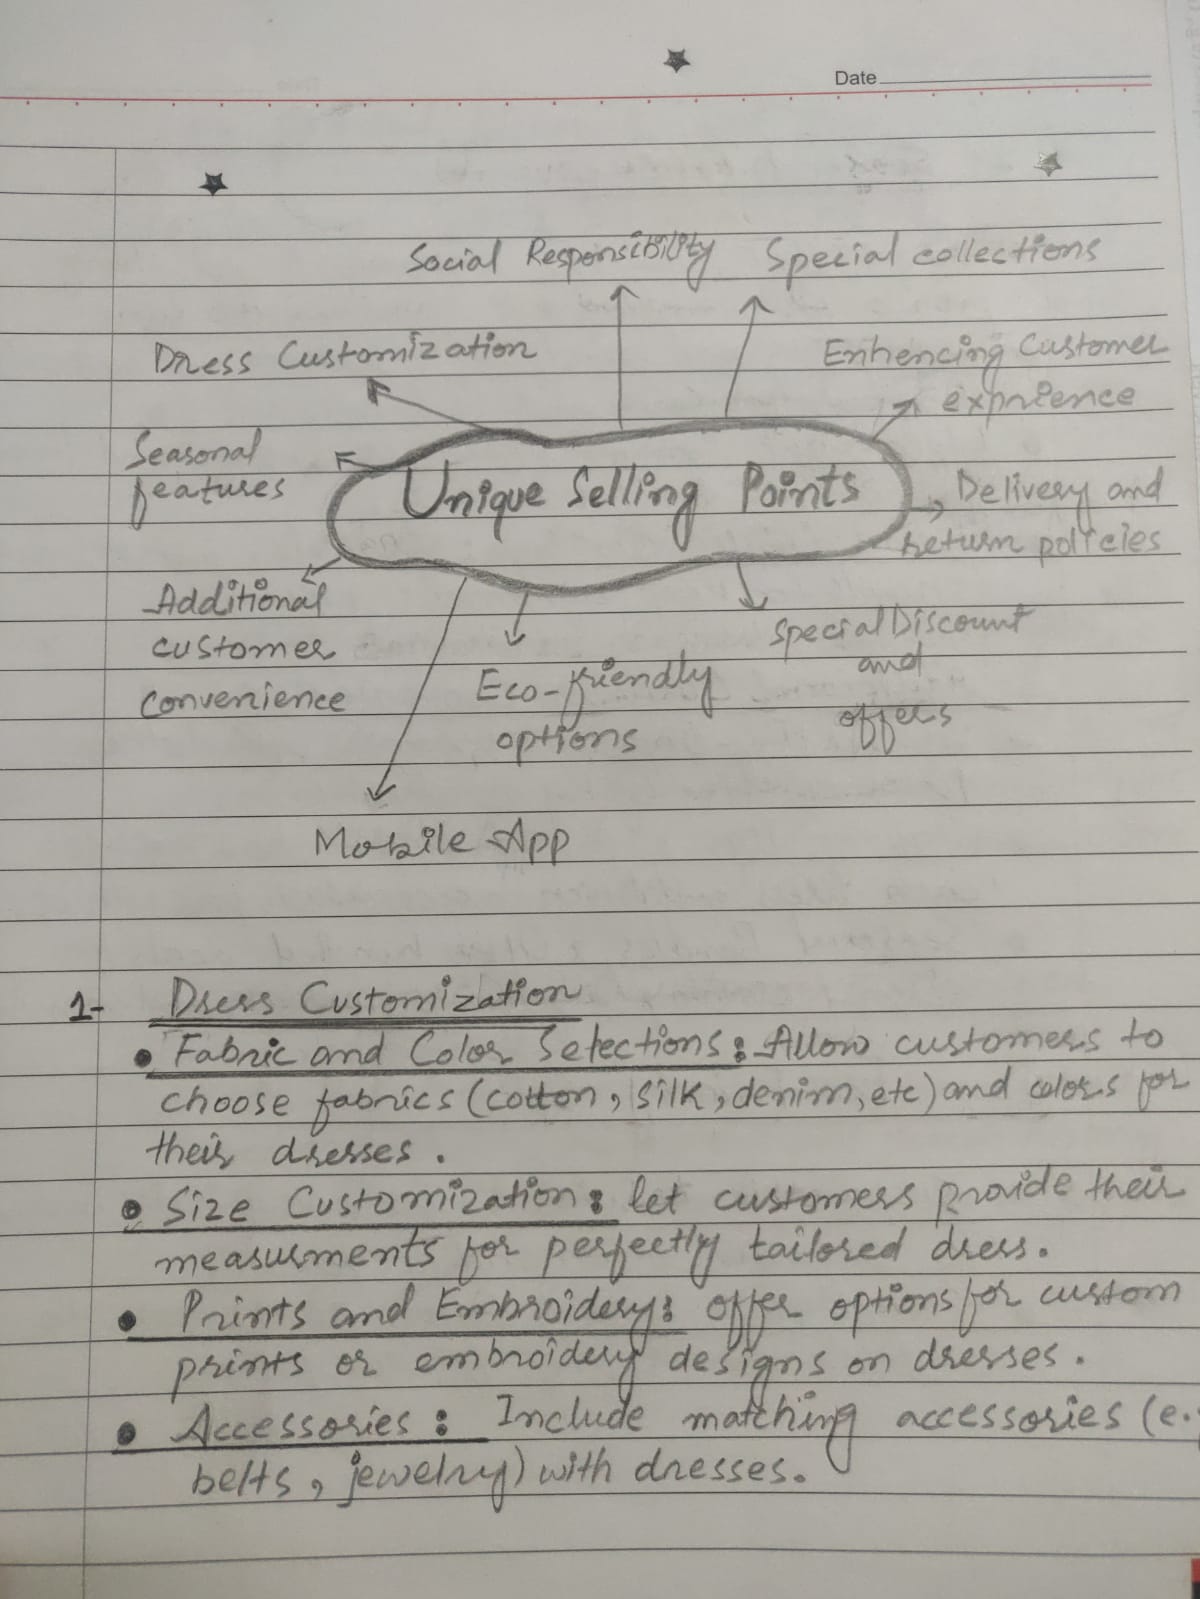 Date
Social Responsibility Special collections
Dress Customization
Enhencing Customer
exprience
Seasonal
features
Unique Selling Points
Delivery and
return policies
Additional
customer
convenience
Special Discount
and
offers
Eco-friendly
options
Mobile App
1- Dress Customization
• Fabric and Color Selections: Allow customers to
choose fabrics (cotton, silk, denim, etc) and colors for
their dresses.
• Size Customization: let customers provide their
measurments for perfectly tailored dress.
• Prints and Embroidery: offer options for custom
prints or embroidery designs on dresses.
• Accessories: Include matching accessories (e.
belts, jewelry) with dresses.